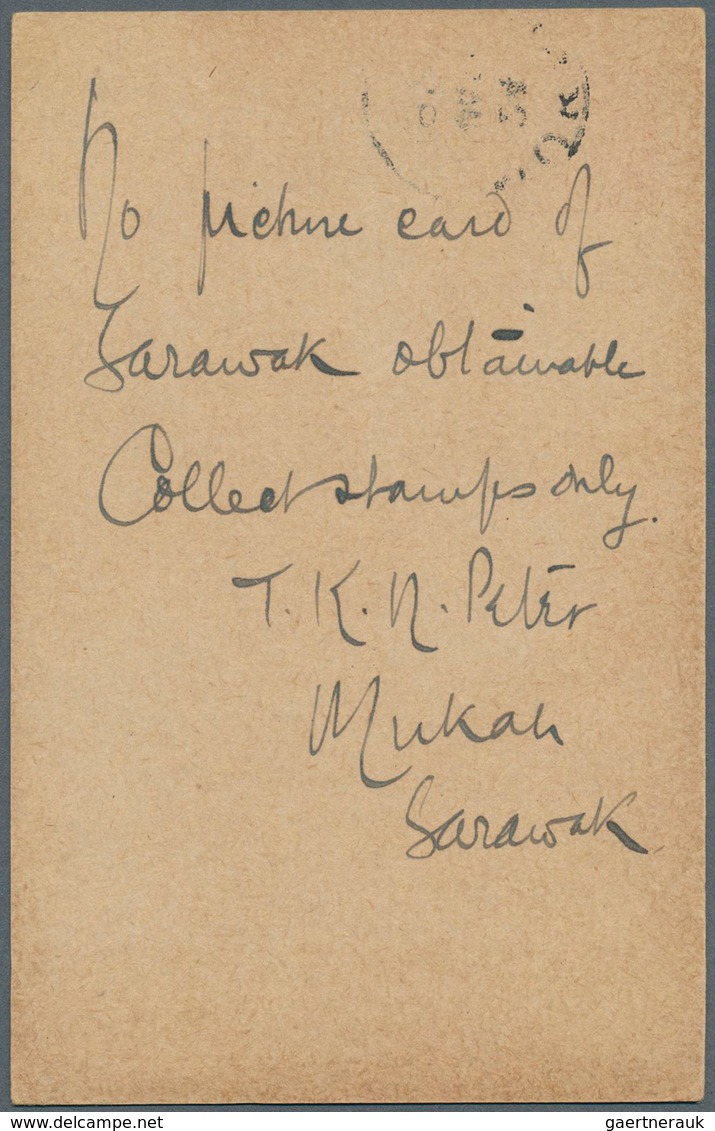 No picture card of
Sarawak obtainable
Collect stamps only.
T. K. N. Peter
Mukah
Sarawak
gaertnerauk